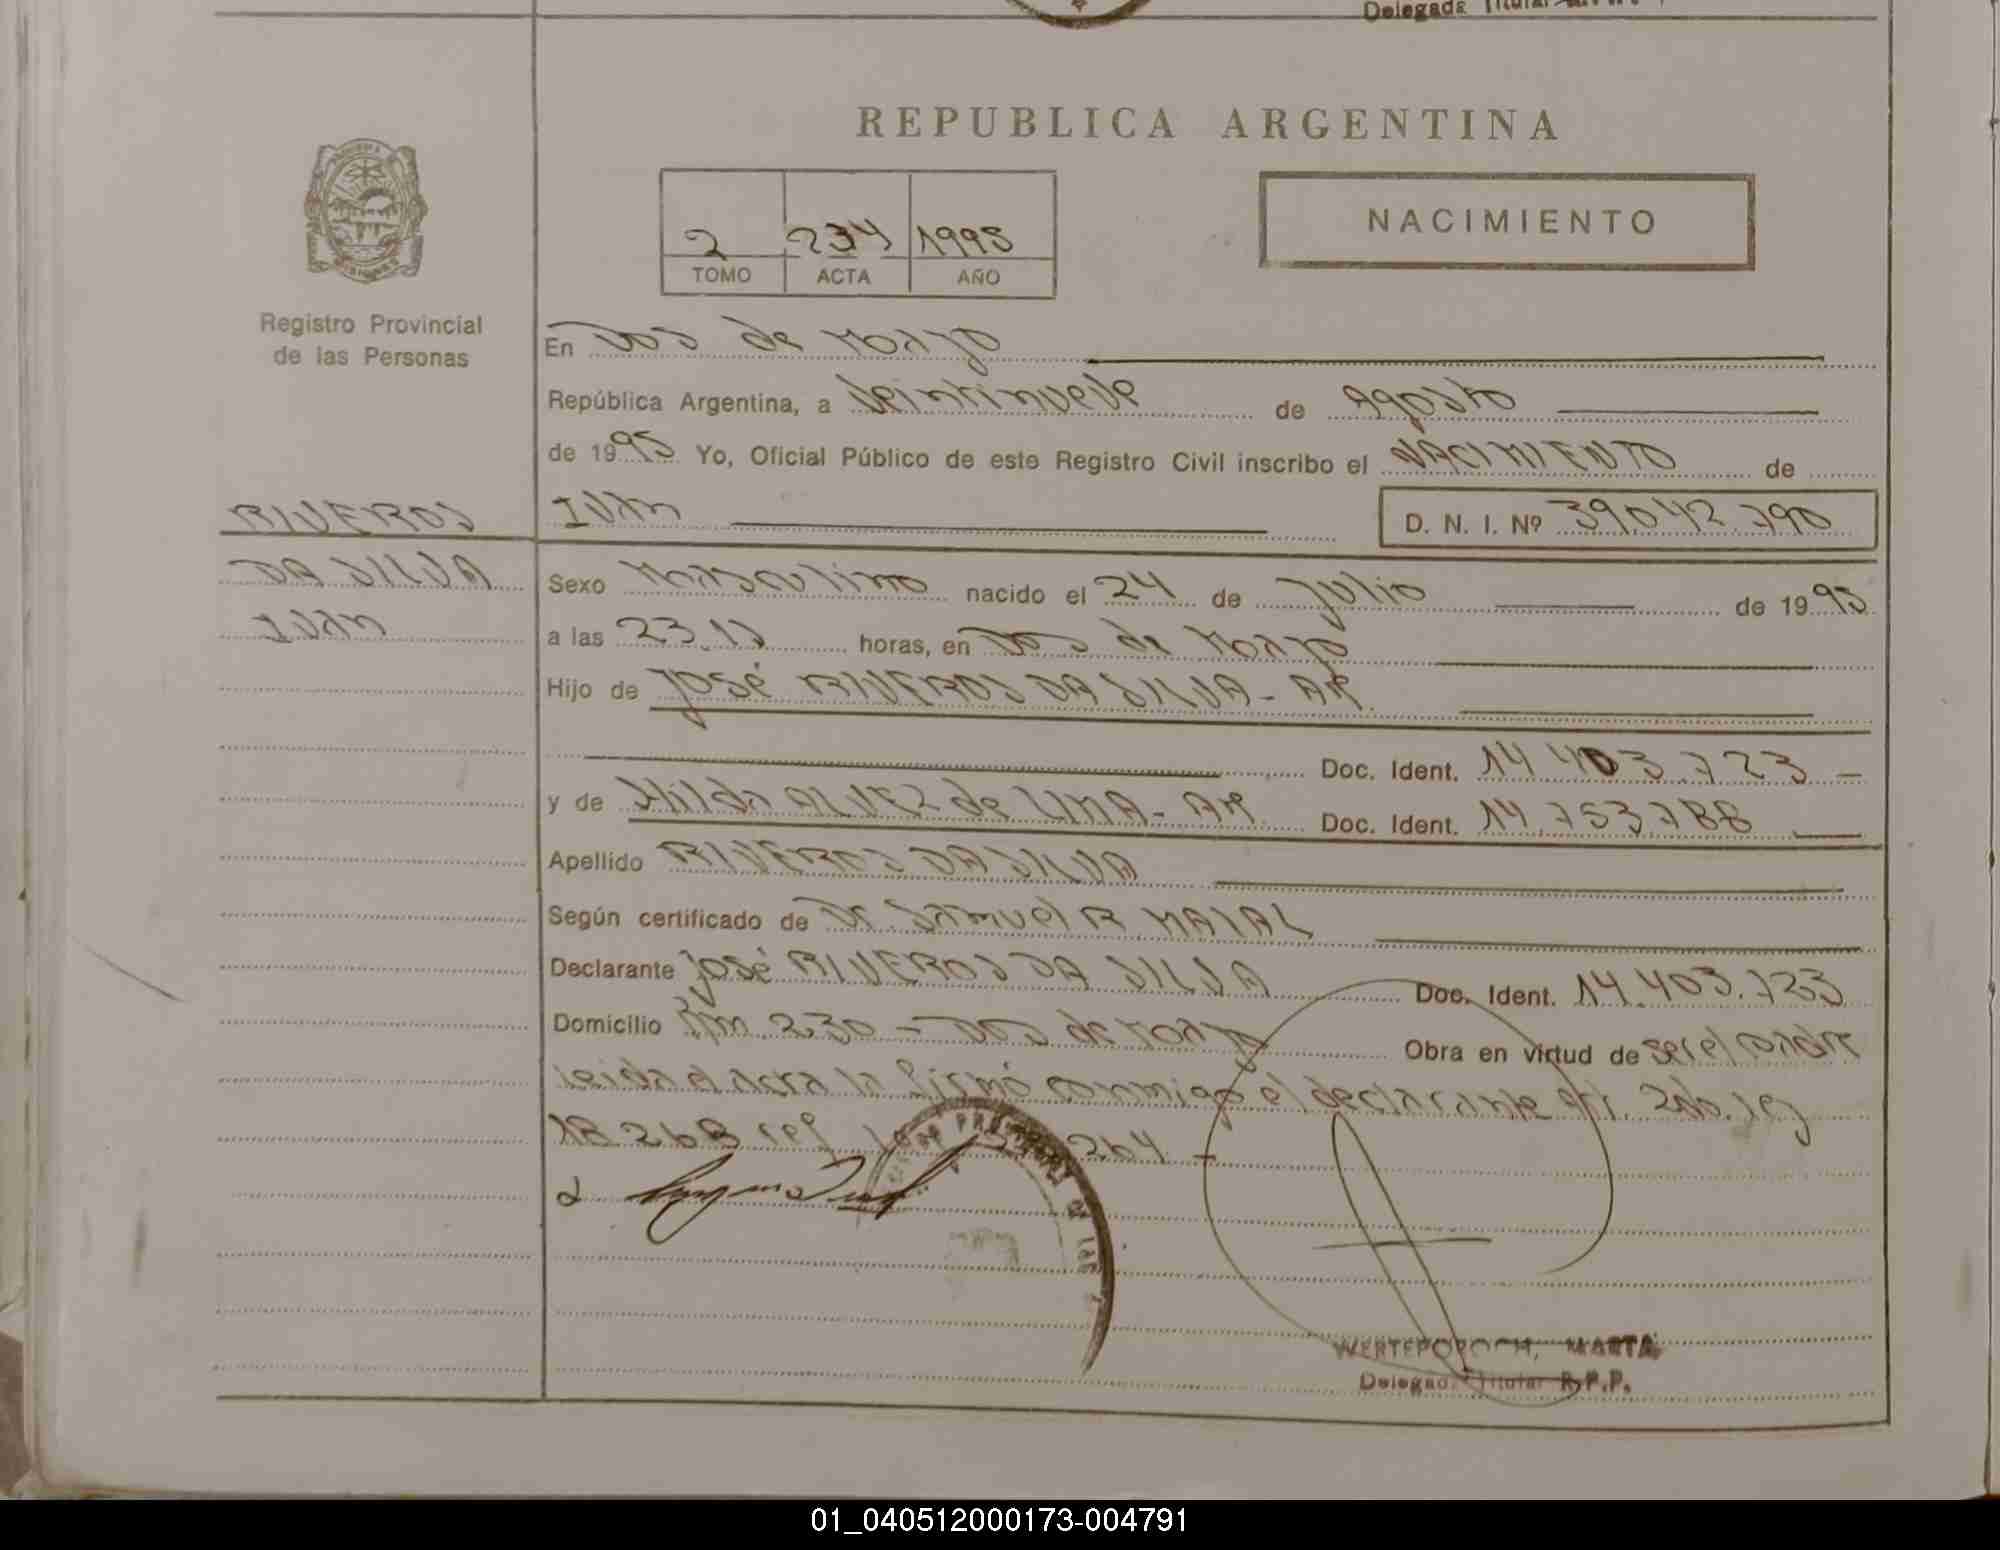 Delegada Titular
REPUBLICA ARGENTINA
NACIMIENTO
2 234 1995
TOMO ACTA AÑO
Registro Provincial
de las Personas
En Dos de Mayo
República Argentina, a Veintinueve de Agosto
de 1995 Yo, Oficial Público de este Registro Civil inscribo el NACIMIENTO de
RIVEROS
Iván
D. N. I. Nº 39042.790
DA SILVA
Iván
Sexo masculino nacido el 24 de Julio de 1995
a las 23.15 horas, en Dos de Mayo
Hijo de José RIVEROS DA SILVA - AR.
Doc. Ident. 14.403.723
y de Hilda ALVEZ de LIMA - AR. Doc. Ident. 14.753.788
Apellido RIVEROS DA SILVA
Según certificado de Dr. Samuel R.
Declarante José RIVEROS DA SILVA Doc. Ident. 14.403.723
Domicilio Km 230 - Dos de Mayo Obra en virtud de ser el padre
leida el acta la firmó conmigo el declarante art. 2do. ley
18268 264 -
WERTEPOROCH, MARTA
Delegada Titular R.P.P.
01_040512000173-004791